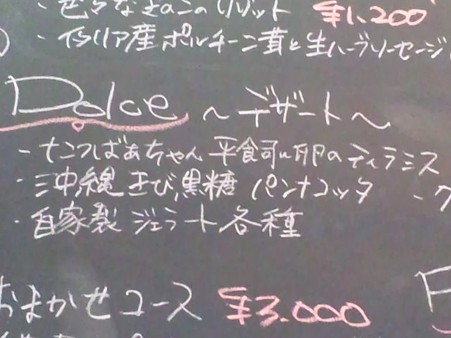 きのこのリゾット ¥1,200
・イタリア産ポルチーニ茸と生ハーブソーセージ
Dolce ～デザート～
ばあちゃん ティラミス
・沖縄きび黒糖 パンナコッタ
・自家製 ジェラート各種
おまかせコース ¥3.000